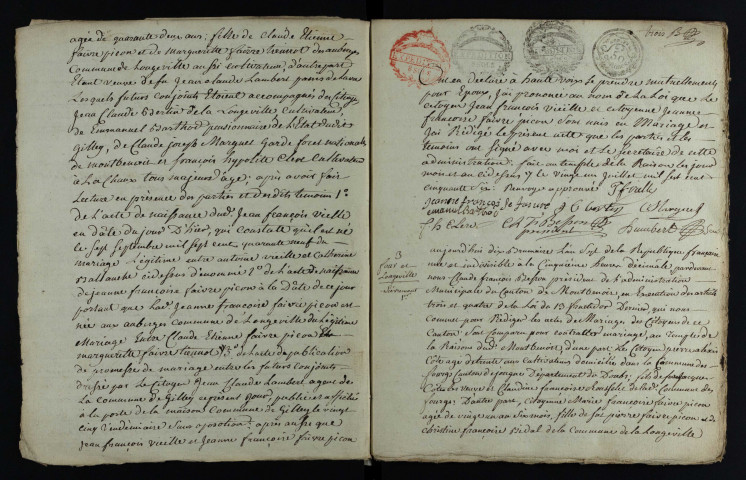 agée de quarante deux ans, fille de Claude Etienne
faivre picon et de Marguerite faivre heuriot des auberges
Commune de Longeville aussi cultivateur, d'autre part
Etant veuve de feu Jean Claude Lambert
Lesquels futurs conjoints Etoient accompagnés des Citoyens
Jean Claude de la Longeville cultivateur
de Emmanuel Barthod pensionnaire de l'Etat dudit
Gilley, de Claude Joseph Marguet Garde foret national
de montbenoit et françois hypolite Clerc Cultivateur
à la Chaux tous majeurs d'age; après avoir fait
Lecture en presence des parties et desdits temoins 1°
de l'acte de naissance dud. Jean françois vieille
en datte du jour D'hier, qui constatte qu'il est né
le Sept Septembre mil Sept cent quarante neuf du
mariage Légitime entre antoine vieille et Catherine
Ballanche ci dessus dénommé 2° de l'acte de naissance
de jeanne francoise faivre picon à la Date de ce jour
portant que lad. Jeanne francoise faivre picon est
née aux auberges commune de Longeville du légitime
Mariage Entre Claude Etienne faivre picon Et
marguerite faivre 3° de l'acte de publication
de promesse de mariage entre les futurs Conjoints
dressé par le Citoyen Jean Claude Lambert agent de
la commune de Gilley publiée et affichée
à la porte de la maison Commune de Gilley le vingt
cinq vendemiaire Sans oposition; après aussi que
Jean françois vieille et Jeanne françoise faivre picon
trois
ont déclaré à haute voix Se prendre mutuellement
pour Epoux, J'ai prononcé au nom de la Loi que Le
Citoyen Jean françois vieille et citoyenne Jeanne
francoise faivre picon Sont unis en Mariage et
J'ai Rédigé le présent acte que les parties et les
temoins ont Signé avec moi et le secretaire de cette
administration. fait au temple de la Raison les jour
mois et an ci dessus le vingt un juillet mil sept cent
cinquante Renvoye approuvé
jeanne françoise faivre
Emanuel Barthod
fh Clerc président humbert
3
Cote et
Longeville
aujourdhui dix Brumaire l'an Sept de la Republique française
une et indivisible à la Cinquieme heure Decimale, pardevant
nous Claude françois Besson président de l'administration
Municipale du Canton de Montbenoit, en Execution des articles
trois et quatre de la Loi du 13 fructidor Dernier, qui nous
Commet pour Rédiger les actes de Mariage des Citoyens de ce
Canton Sont comparu pour contracter mariage, au temple de
la Raison dud. Montbenoit d'une part Le Citoyen pierre alexis
Cote agé de trente ans Cultivateur domicilié dans la Commune des
fourgs Canton de Jougne Département du Doubs, fils de
Cote et de Claudine francoise de lad. Commune des
fourgs. D'autre part, Citoyenne Marie francoise faivre picon
agée de vingt un ans six mois, fille de feu pierre faivre picon et de
christine francoise Bidal de la Commune de la Longeville